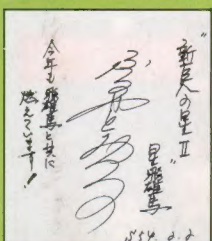 "新巨人の星II"
星飛雄馬
今年も飛雄馬と共に
燃えています!
S54. 2. 2